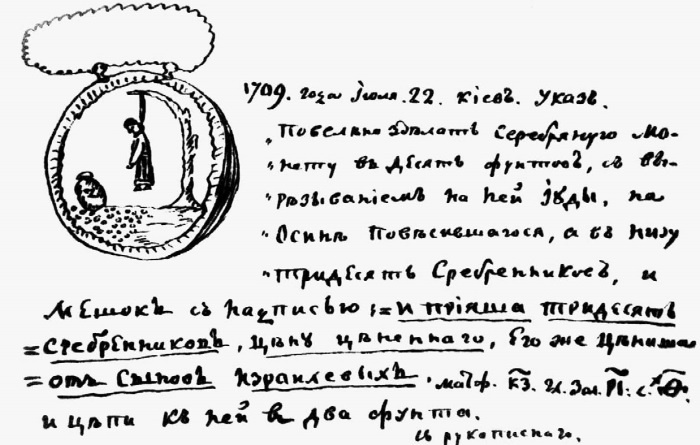 1709. года Іюля. 22. Кіевъ. Указъ.
„Повелѣно здѣлать серебряную мо-
„нету въ десять фунтовъ, съ вы-
„рѣзываніемъ на ней Іуды, на
„осинѣ повѣсившагося, а въ низу
„тридесять сребренниковъ, и
мешокъ съ надписью: = и пріяша тридесять
= сребренниковъ, цѣну цѣненнаго, его же цѣниша
= отъ сыновъ израилевыхъ. матф. к͠з.
и цѣпи къ ней въ два фунта.
съ рукописнаго.